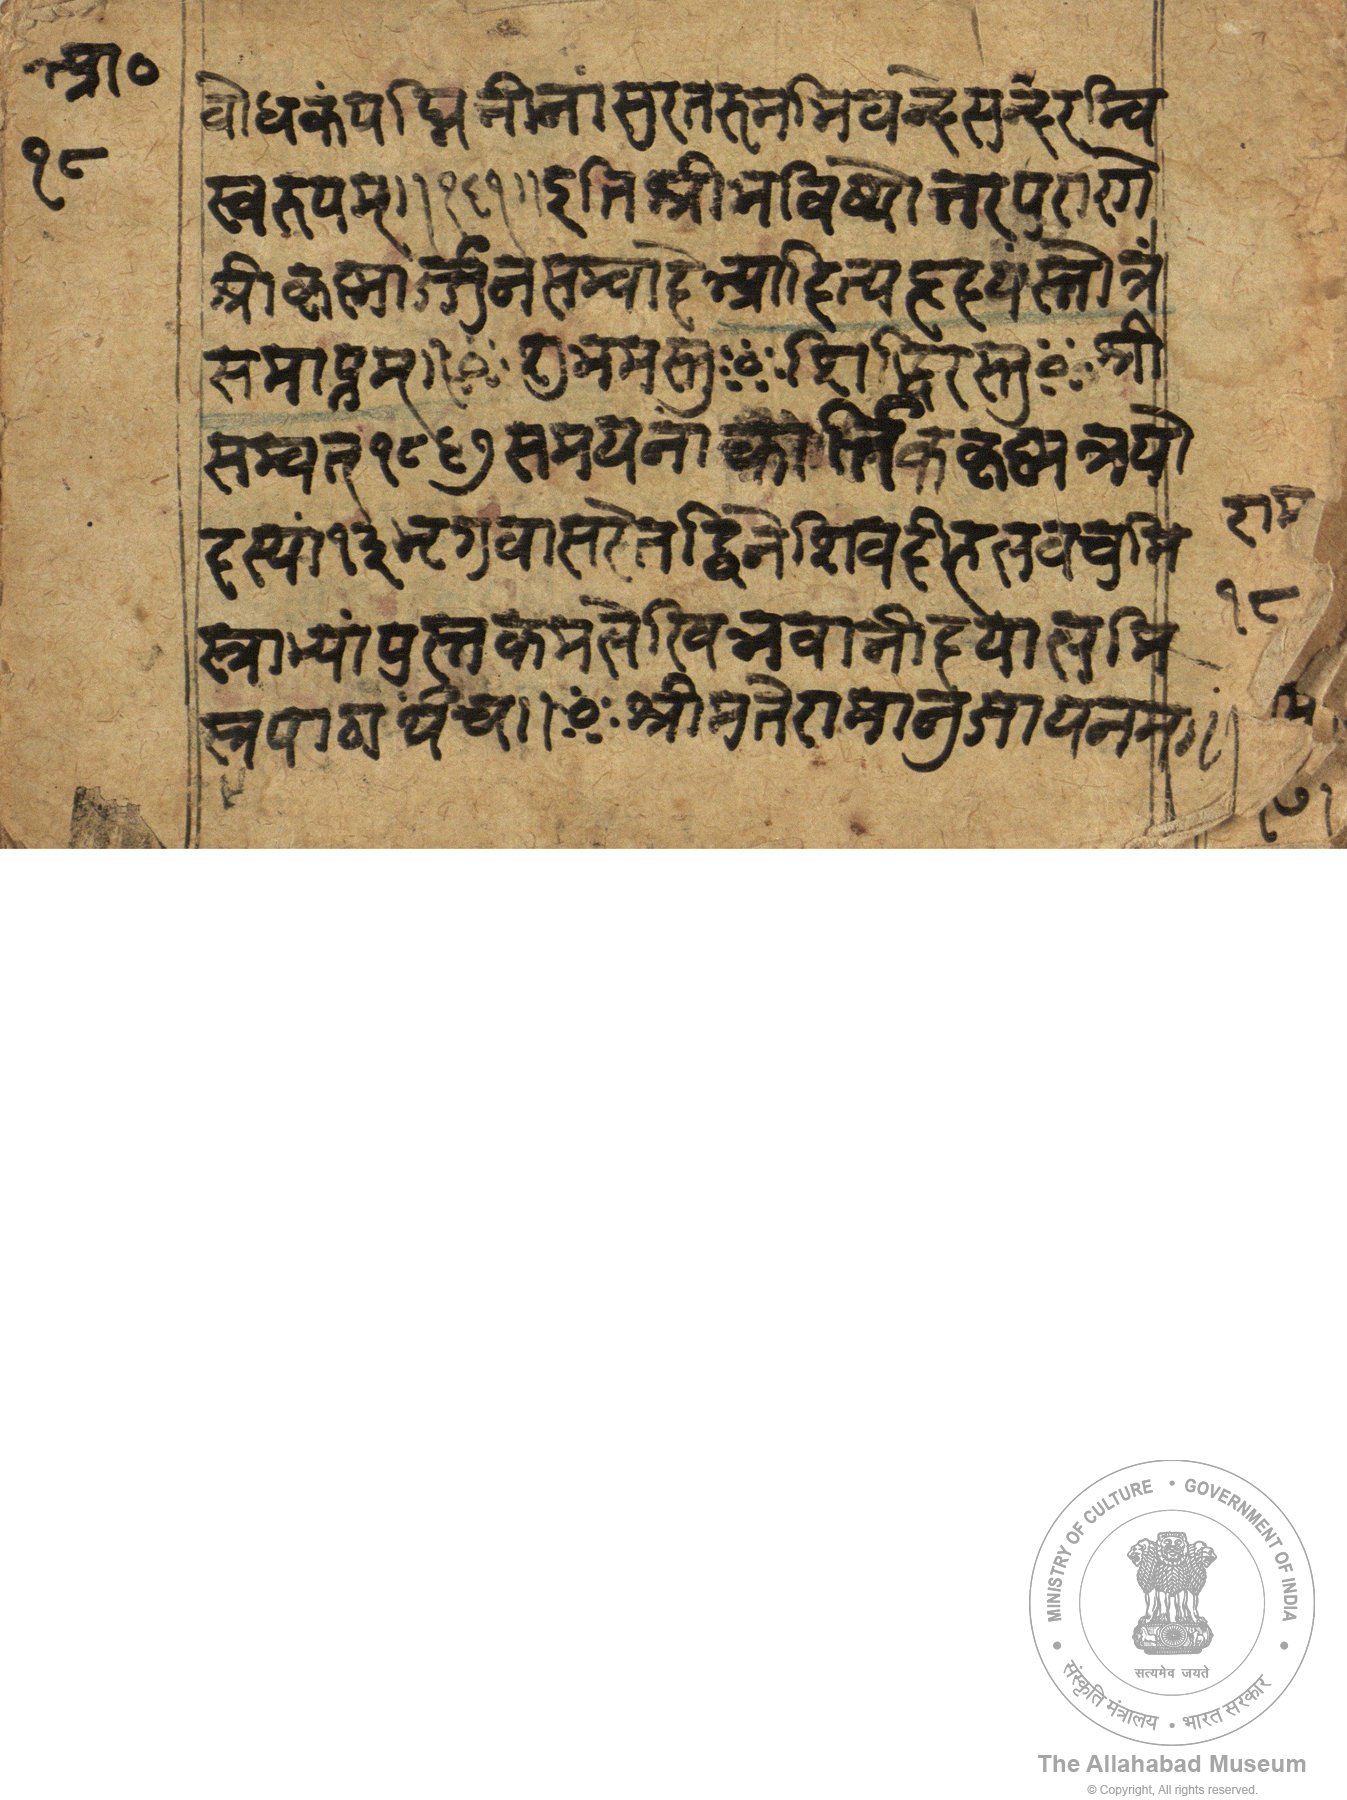 आ०
१८
वोधकंपद्मिनीनां सुरतरुनमिवन्दे सुन्दरम्वि
स्वरूपम् ॥१६१॥ इति श्रीभविष्योत्तरपुराणे
श्रीकृष्णार्ज्जुनसम्वादे आदित्यहृदयं स्तोत्रं
समाप्तम् ॥ शुभमस्तु शिद्धिरस्तु श्री
सम्वत् १८६७ समयनां कार्त्तिककृष्णत्रयो
दस्यां १३ गुवासरे तद्दिने शिवदीन
पुस्तकमलेखि
पाठार्थंच ॥ श्रीमतेरामानुजायनमः ॥
राम
१८
MINISTRY OF CULTURE • GOVERNMENT OF INDIA
सत्यमेव जयते
संस्कृति मंत्रालय • भारत सरकार
The Allahabad Museum
© Copyright, All rights reserved.